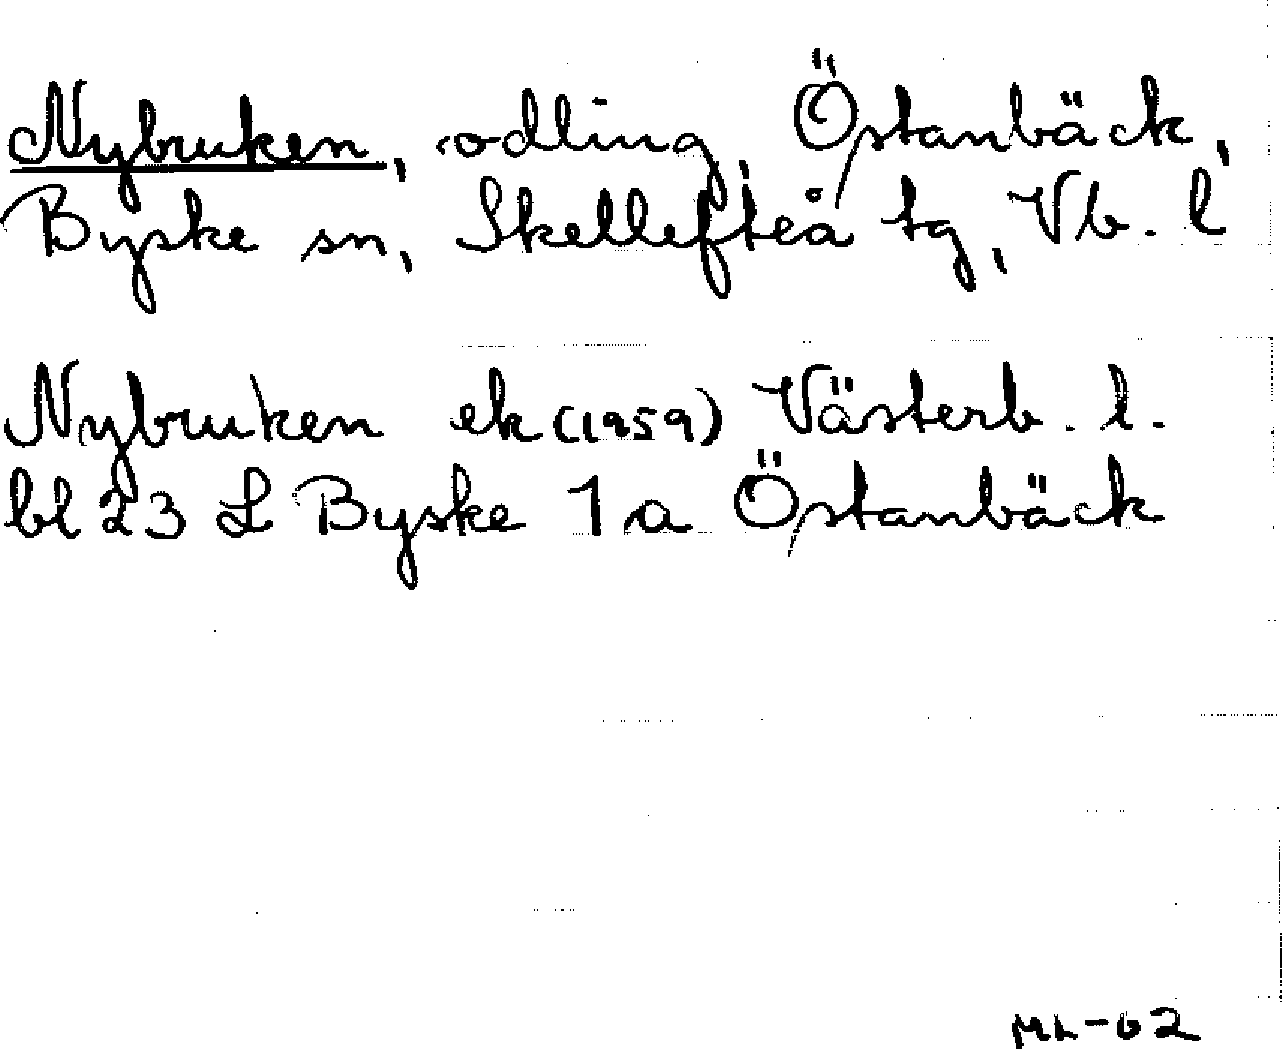 Nybruken, odling, Östanbäck,
Byske sn, Skellefteå tg, Vb. l
Nybruken ek (1959) Västerb. l.
bl 23 L Byske 1 a Östanbäck
ML-62